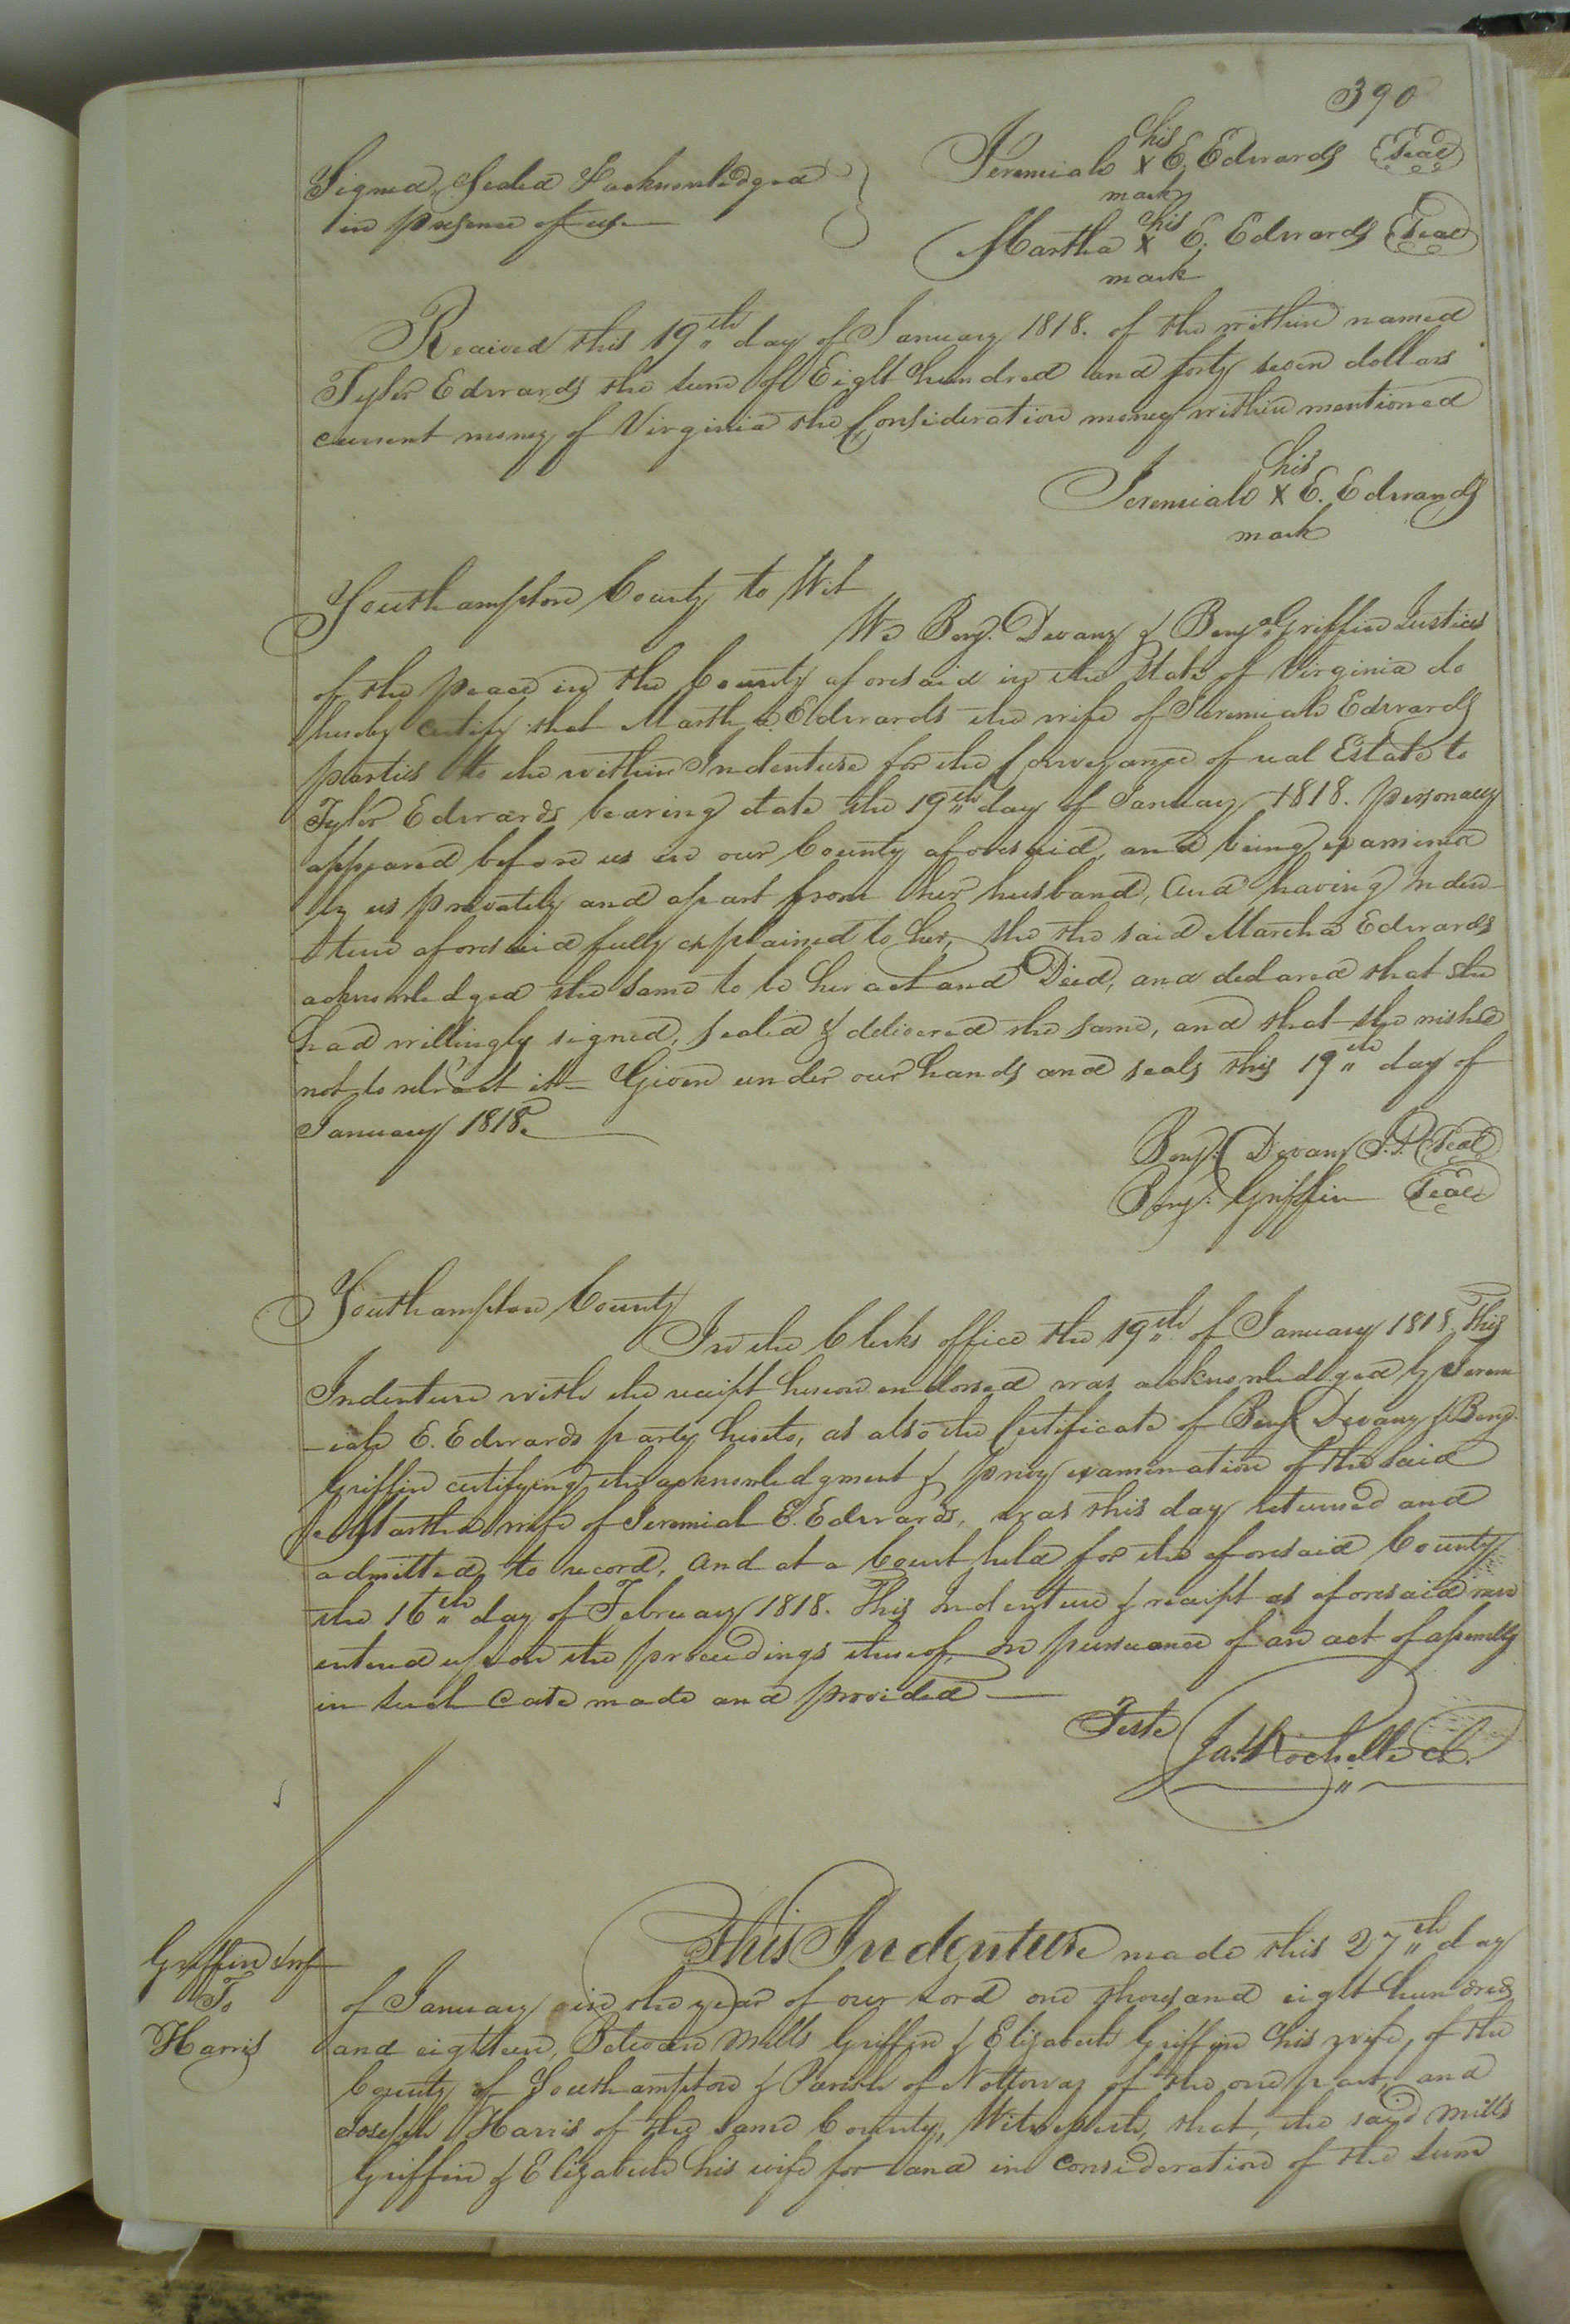 390
Signed, Sealed & acknowledged
in presence of us
his
Jeremiah X E. Edwards Seal
mark
his
Martha X E. Edwards Seal
mark
Received this 19th day of January 1818. of the within named
Tyler Edwards the sum of Eight hundred and forty seven dollars
current money of Virginia the Consideration money within mentioned
his
Jeremiah X E. Edwards
mark
Southampton County to Wit
We Benj. Devany & Benja. Griffin Justices
of the peace in the County aforesaid in the State of Virginia do
hereby certify that Martha Edwards the wife of Jeremiah Edwards
parties to the within Indenture for the Conveyance of real Estate to
Tyler Edwards bearing date the 19th day of January 1818. personally
appeared before us in our County aforesaid, and being examined
by us privately and apart from her husband, and having Inden-
ture aforesaid fully explained to her, she the said Martha Edwards
acknowledged the same to be her act and Deed, and declared that she
had willingly signed, sealed & delivered the same, and that she wished
not to retract it - Given under our hands and seals this 19th day of
January 1818.
Benj. Devany J.P. Seal
Benj. Griffin Seal
Southampton County
In the Clerks office the 19th of January 1818. This
Indenture with the receipt hereon endorsed was acknowledged by Jerem
-iah E. Edwards party hereto, as also the Certificate of Benj. Devany & Benj.
Griffin certifying the acknowledgment & privy examination of the said
Martha wife of Jeremiah E. Edwards, was this day returned and
admitted to record, and at a Court held for the aforesaid County
the 16th day of February 1818. This Indenture & receipt as aforesaid was
entered upon the proceedings thereof, in pursuance of an act of assembly
in such Case made and provided —
Teste
Jas. Rochelle C.
Griffin & wf
To
Harris
This Indenture made this 27th day
of January in the year of our Lord one thousand eight hundred
and eighteen, Between Mills Griffin & Elizabeth Griffin his wife, of the
County of Southampton & Parish of Nottoway of the one part, and
Joseph Harris of the same County, Witnesseth, that, the said Mills
Griffin & Elizabeth his wife for and in consideration of the sum